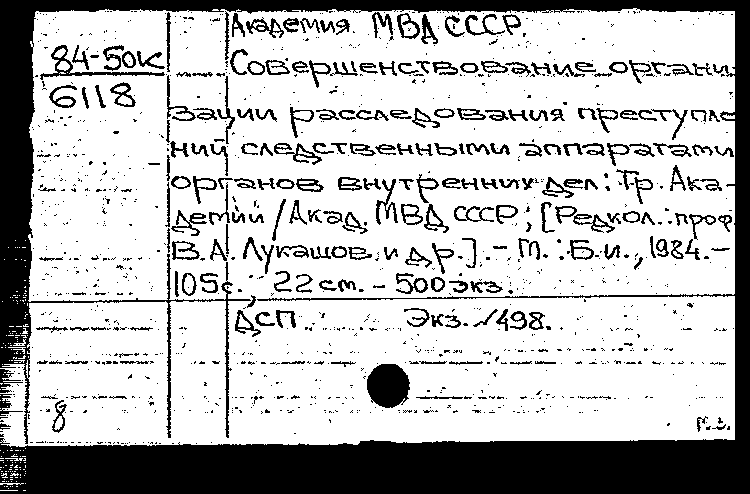 Академия МВД СССР.
84-50к Совершенствование органи-
6118
зации расследования преступле
ний следственными аппаратами
органов внутренних дел: Тр. Ака-
демии / Акад. МВД СССР; [Редкол.: проф.
В.А. Лукашов и др.]. - М.: Б.и., 1984. -
105с.; 22 см. - 500 экз.
ДСП Экз. №498.
8